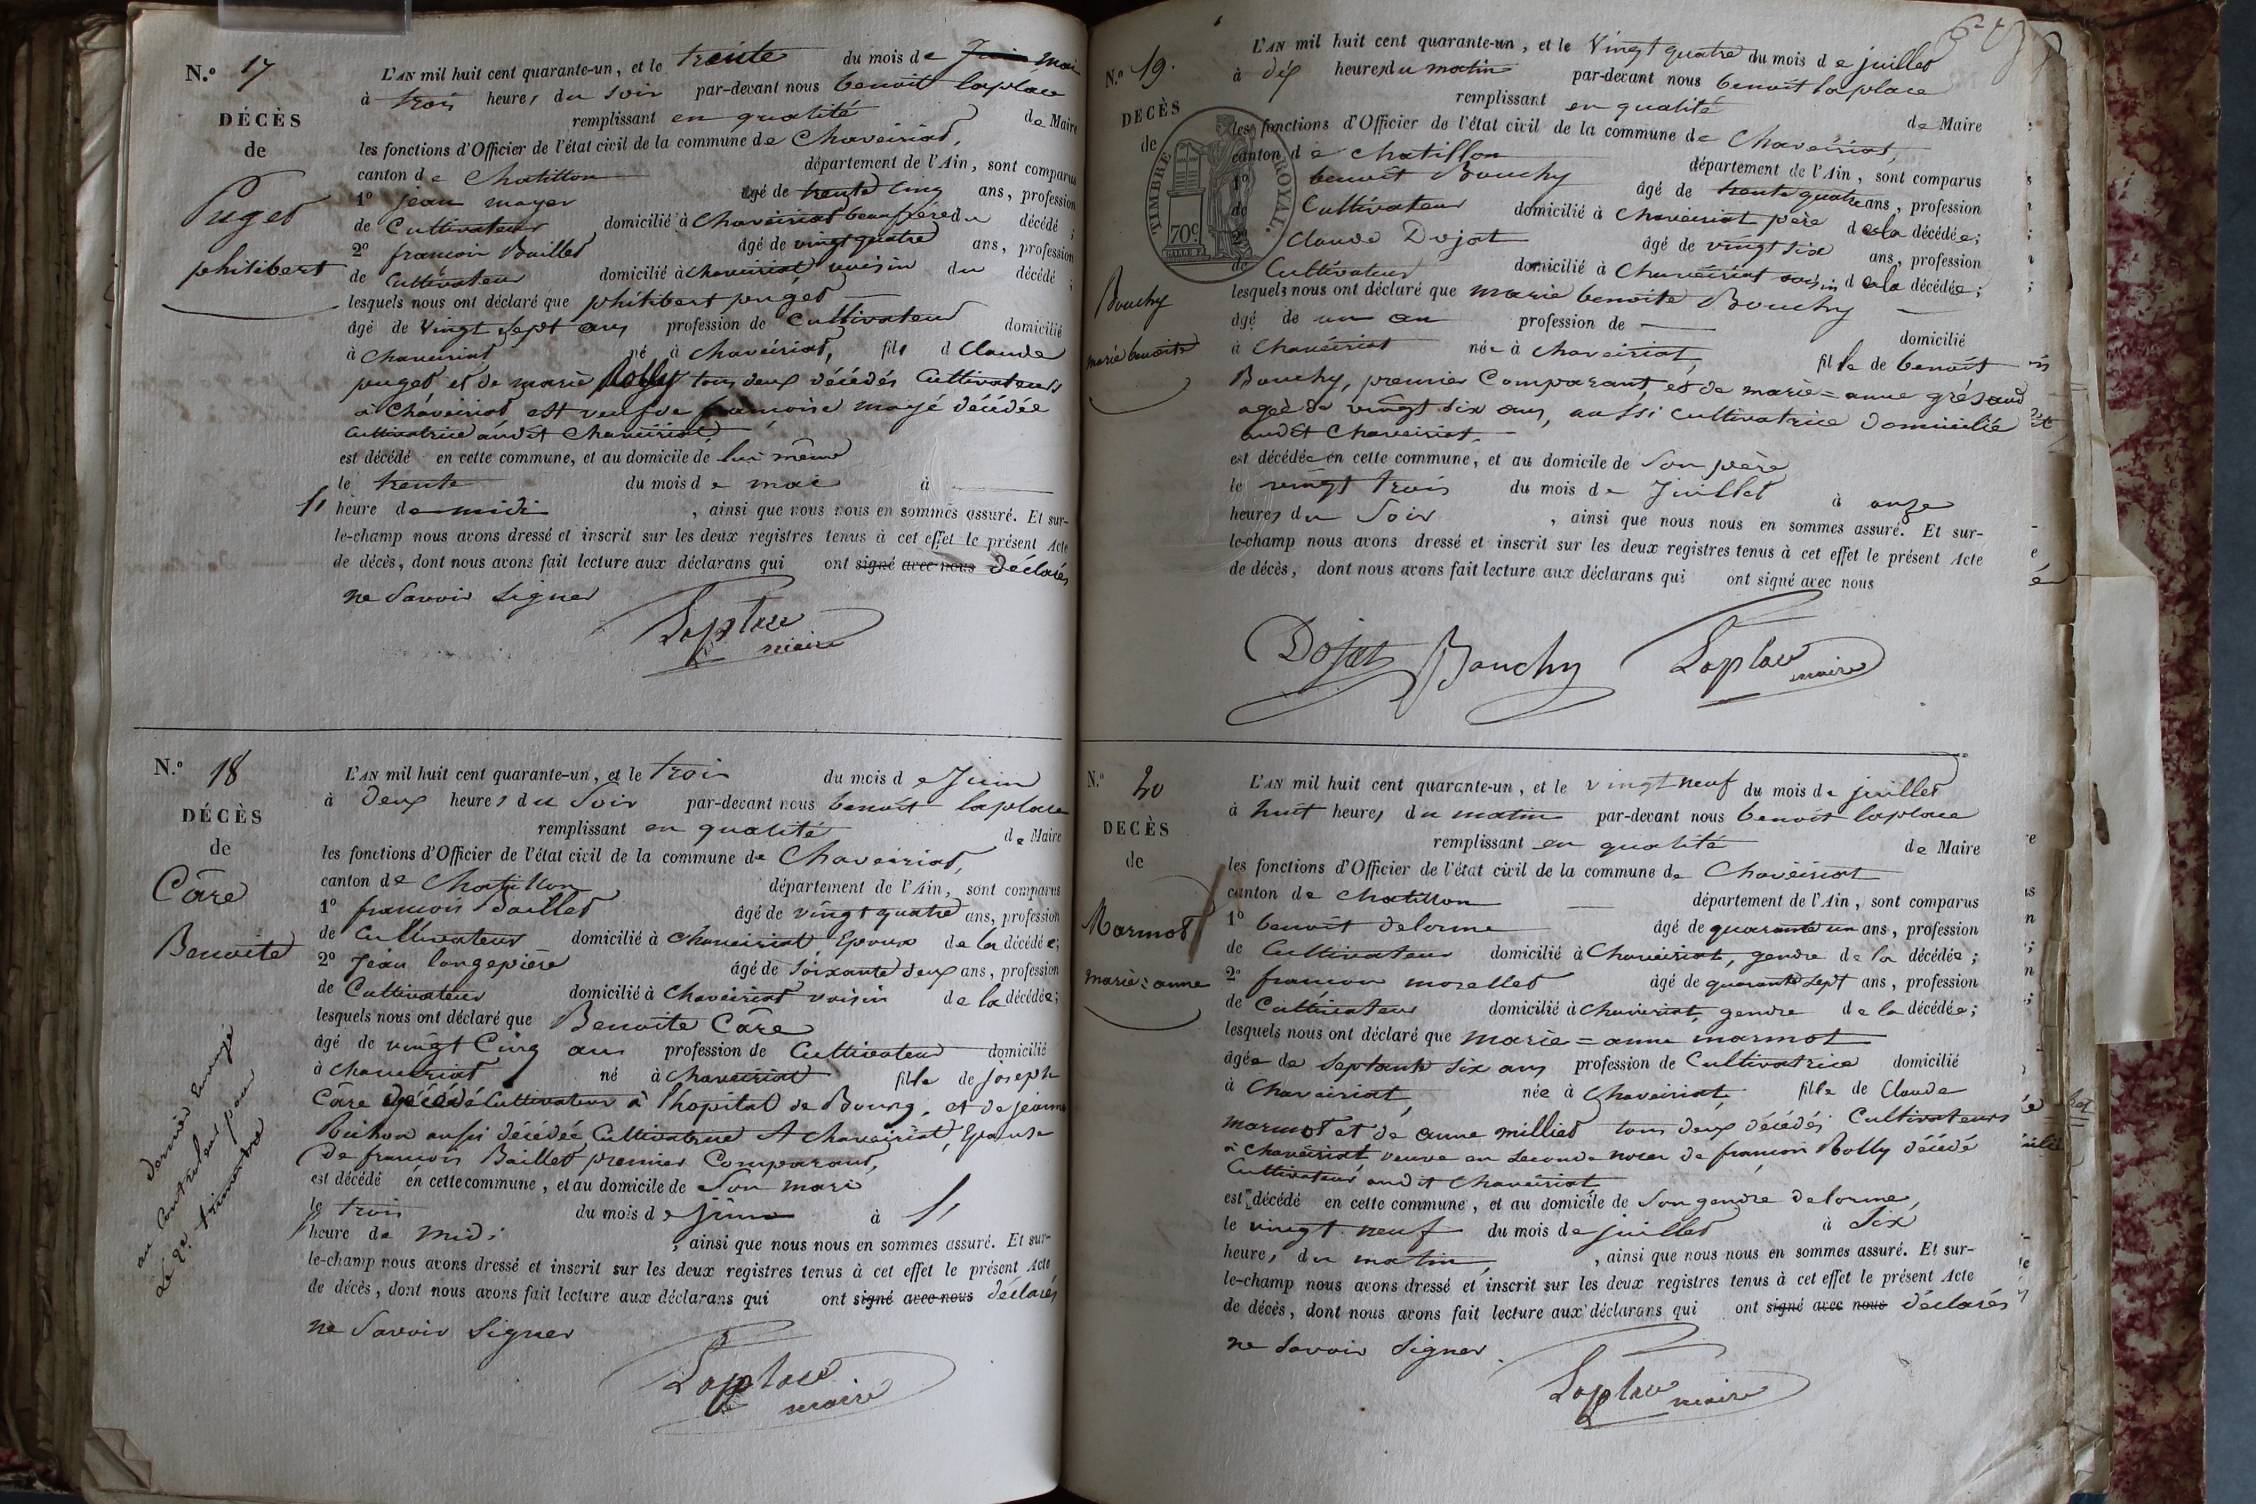 N.o 17
DÉCÈS
de
Puget
philibert
L'AN mil huit cent quarante-un, et le trente du mois de Juin mai
à trois heures du soir par-devant nous benoit laplace
remplissant en qualité de Maire
les fonctions d'Officier de l'état civil de la commune de Chaveiriat,
canton de Chatillon département de l'Ain, sont comparus
1o jean moyer âgé de trente cinq ans, profession
de Cultivateur domicilié à Chaveiriat beaufrère du décédé ;
2o francois Baillet âgé de vingt quatre ans, profession
de Cultivateur domicilié à chaveiriat voisin du décédé ;
lesquels nous ont déclaré que philibert puget
âgé de vingt sept ans profession de Cultivateur domicilié
à Chaveiriat né à chaveiriat, fils d Claude
puget et de marie Rolly tous deux décédés Cultivateurs
à Chaveiriat est veuf de francoise moyé décédée
Cultivatrice audit Chaveiriat,
est décédé en cette commune, et au domicile de lui même
le trente du mois de mai à
11 heure de midi , ainsi que nous nous en sommes assuré. Et sur-
le-champ nous avons dressé et inscrit sur les deux registres tenus à cet effet le présent Acte
de décès, dont nous avons fait lecture aux déclarans qui ont signé avec nous déclarés
ne Savoir Signer
Laplace
maire
N.o 18
DÉCÈS
de
Câre
Benoite
dernier Envoyé
au Controleur pour
Le 2e. trimestre
L'AN mil huit cent quarante-un, et le trois du mois de Juin
à deux heures du Soir par-devant nous benoit laplace
remplissant en qualité de Maire
les fonctions d'Officier de l'état civil de la commune de Chaveiriat,
canton de Chatillon département de l'Ain, sont comparus
1o francois Baillet âgé de vingt quatre ans, profession
de Cultivateur domicilié à Chaveiriat Epoux de la décédée;
2o Jean longepierre âgé de Soixante deux ans, profession
de Cultivateur domicilié à Chaveiriat voisin de la décédée;
lesquels nous ont déclaré que Benoite Câre
âgé de vingt Cinq ans profession de Cultivateur domicilié
à Chaveiriat né à Chaveiriat fille de joseph
Câre décédé Cultivateur à l'hopital de Bourg, et de jeanne
Buchon aussi décédée Cultivatrice A Chaveiriat, Epouse
De francois Baillet premier Comparant,
est décédé en cette commune, et au domicile de Son mari
le trois du mois de juin à 11
heure de midi , ainsi que nous nous en sommes assuré. Et sur-
le-champ nous avons dressé et inscrit sur les deux registres tenus à cet effet le présent Acte
de décès, dont nous avons fait lecture aux déclarans qui ont signé avec nous déclarés
ne Savoir Signer
Laplace
maire
N.o 19.
DECÈS
de
Bouchy
marie benoite
TIMBRE ROYAL.
70c
L'AN mil huit cent quarante-un, et le Vingt quatre du mois de juillet
à dix heures du matin par-devant nous benoit laplace
remplissant en qualité de Maire
les fonctions d'Officier de l'état civil de la commune de Chaveiriat,
canton de Chatillon département de l'Ain, sont comparus
1o benoit Bouchy âgé de trente quatre ans, profession
de Cultivateur domicilié à Chaveiriat père de la décédée;
2o Claude Dojat âgé de vingt six ans, profession
de Cultivateur domicilié à Chavéiriat voisin de la décédée;
lesquels nous ont déclaré que marie benoite Bouchy
âgé de un an profession de domicilié
à Chavéiriat née à Chaveiriat, fille de benoit
Bouchy, premier Comparant, et de marie=anne grésaud
agée de vingt six ans, aussi cultivatrice domiciliée
audit Chaveiriat.
est décédée en cette commune, et au domicile de Son père
le vingt trois du mois de Juillet à onze
heures du Soir , ainsi que nous nous en sommes assuré. Et sur-
le-champ nous avons dressé et inscrit sur les deux registres tenus à cet effet le présent Acte
de décès, dont nous avons fait lecture aux déclarans qui ont signé avec nous
Dojat Bouchy Laplace
maire
N.o 20
DECÈS
de
Marmot
marie=anne
L'AN mil huit cent quarante-un, et le vingt neuf du mois de juillet
à huit heures du matin par-devant nous benoit laplace
remplissant en qualité de Maire
les fonctions d'Officier de l'état civil de la commune de Chaveiriat
canton de Chatillon département de l'Ain, sont comparus
1o benoit delorme âgé de quarante un ans, profession
de Cultivateur domicilié à Chaveiriat, gendre de la décédée;
2o francois morellet âgé de quarante sept ans, profession
de Cultivateur domicilié à Chaveiriat, gendre de la décédée;
lesquels nous ont déclaré que marie=anne marmot
âgée de Septante Six ans profession de Cultivatrice domicilié
à Chaveiriat, née à Chaveiriat, fille de Claude
marmot et de anne milliet tous deux décédés Cultivateurs
à Chaveiriat veuve en Seconde noces de francois Rolly décédé
Cultivateur audit Chaveiriat
est décédé en cette commune, et au domicile de Son gendre delorme,
le vingt neuf du mois de juillet à Six
heures du matin , ainsi que nous nous en sommes assuré. Et sur-
le-champ nous avons dressé et inscrit sur les deux registres tenus à cet effet le présent Acte
de décès, dont nous avons fait lecture aux déclarans qui ont signé avec nous déclarés
ne Savoir Signer.
Laplace
maire